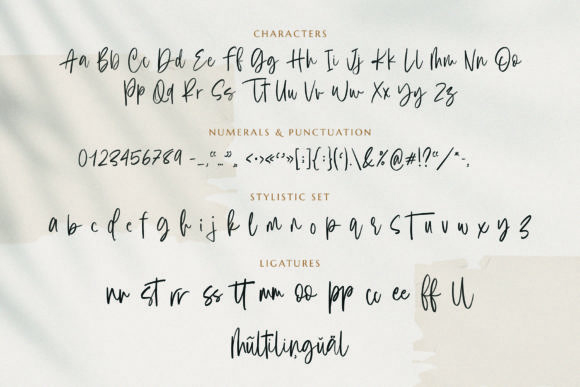 CHARACTERS
Aa Bb Cc Dd Ee Ff Gg Hh Ii Jj Kk Ll Mm Nn Oo
Pp Qq Rr Ss Tt Uu Vv Ww Xx Yy Zz
NUMERALS & PUNCTUATION
0123456789 -_,“„”, <·>«‘’»[;]{:}(‘).\&%@#!?“/*-,
STYLISTIC SET
a b c d e f g h i j k l m n o p q r s t u v w x y z
LIGATURES
nn st rr ss tt mm oo pp cc ee ff ll
Multilingual